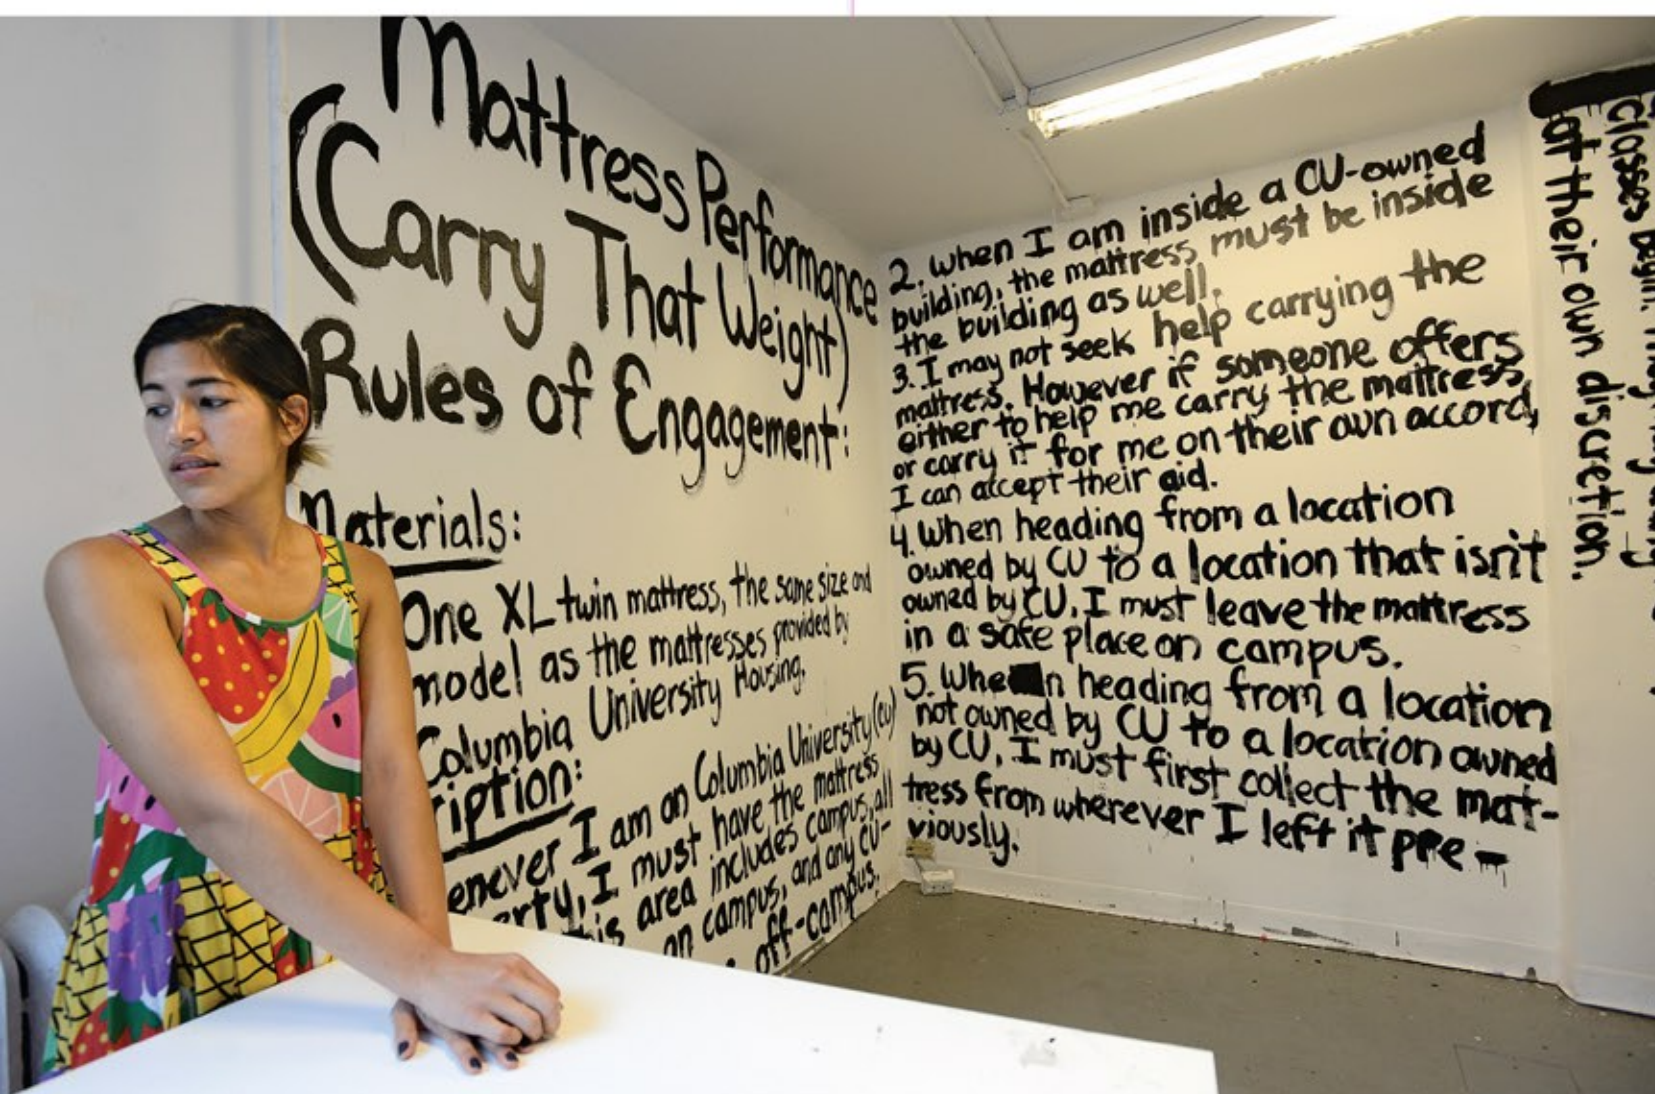 Mattress Performance
(Carry That Weight)
Rules of Engagement:
Materials:
One XL twin mattress, the same size and
model as the mattresses provided by
Columbia University Housing.
ription:
enever I am on Columbia University (CU)
erty, I must have the mattress
his area includes campus, all
on campus, and any CU-
off-campus.
2. When I am inside a CU-owned
building, the mattress must be inside
the building as well.
3. I may not seek help carrying the
mattress. However if someone offers
either to help me carry the mattress,
or carry it for me on their own accord,
I can accept their aid.
4. When heading from a location
owned by CU to a location that isn't
owned by CU, I must leave the mattress
in a safe place on campus.
5. When heading from a location
not owned by CU to a location owned
by CU, I must first collect the mat-
tress from wherever I left it pre-
viously.
classes begin.
at their own discretion.